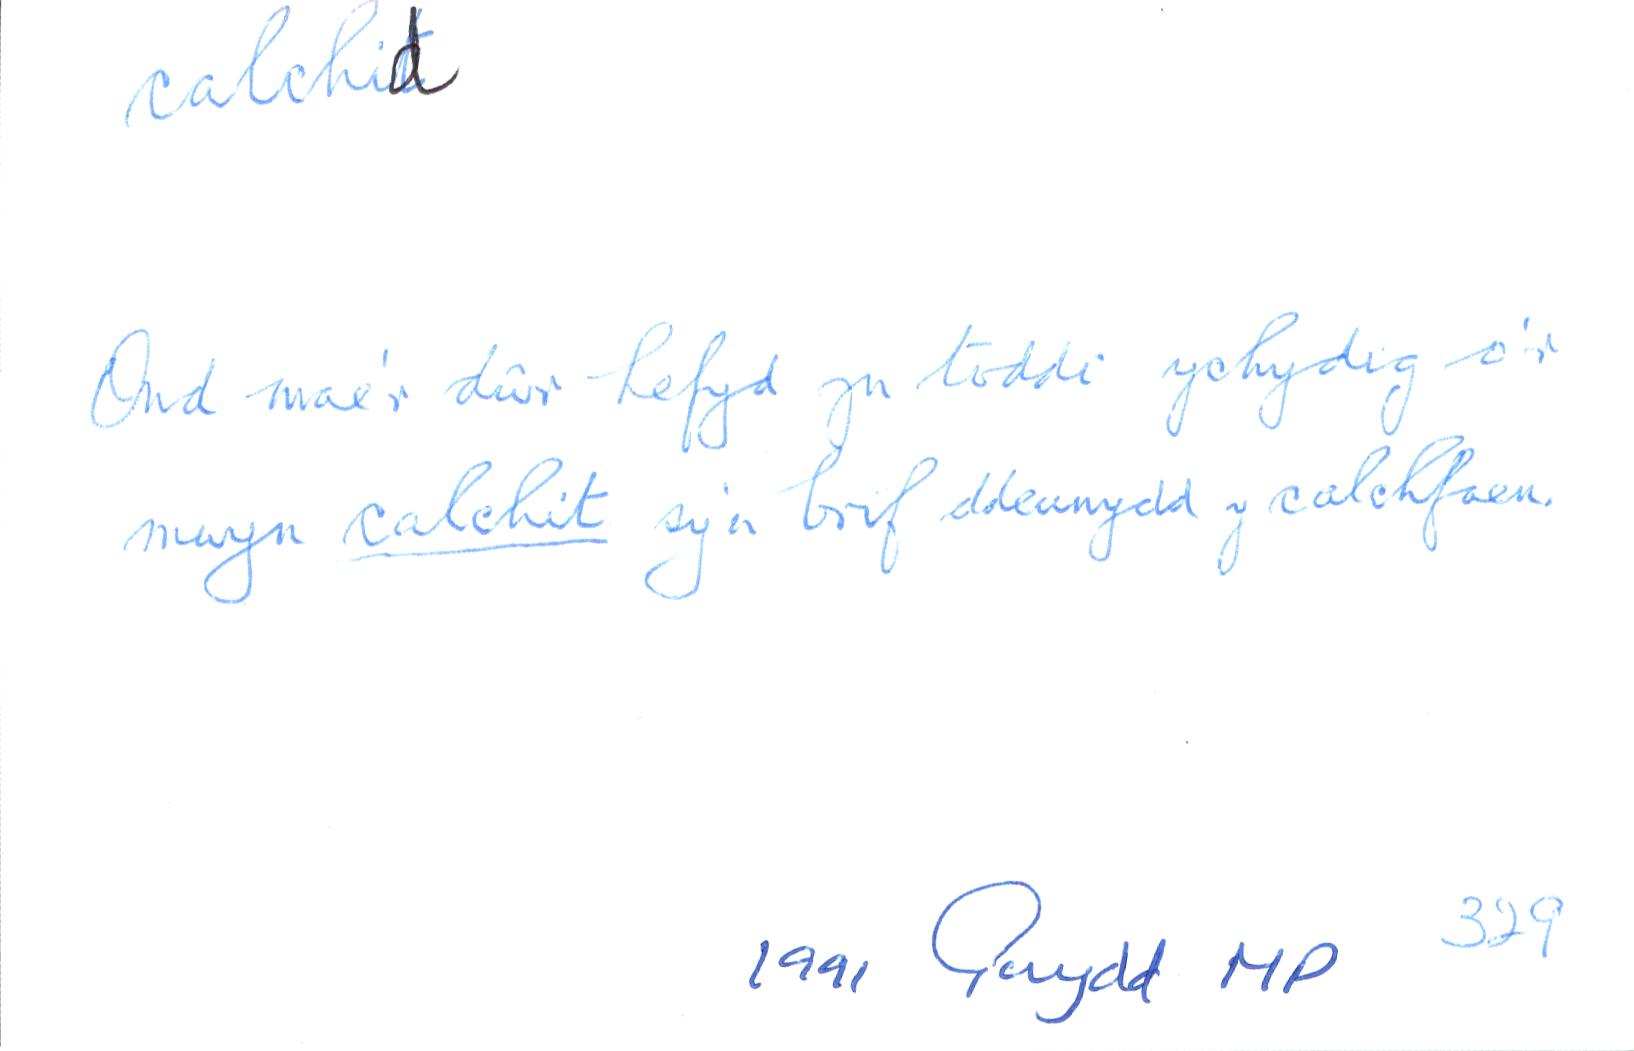 calchid
Ond mae'r dŵr hefyd yn toddi ychydig o'r
mwyn calchit sy'n brif ddeunydd y calchfaen.
1991 Gwydd MP 329